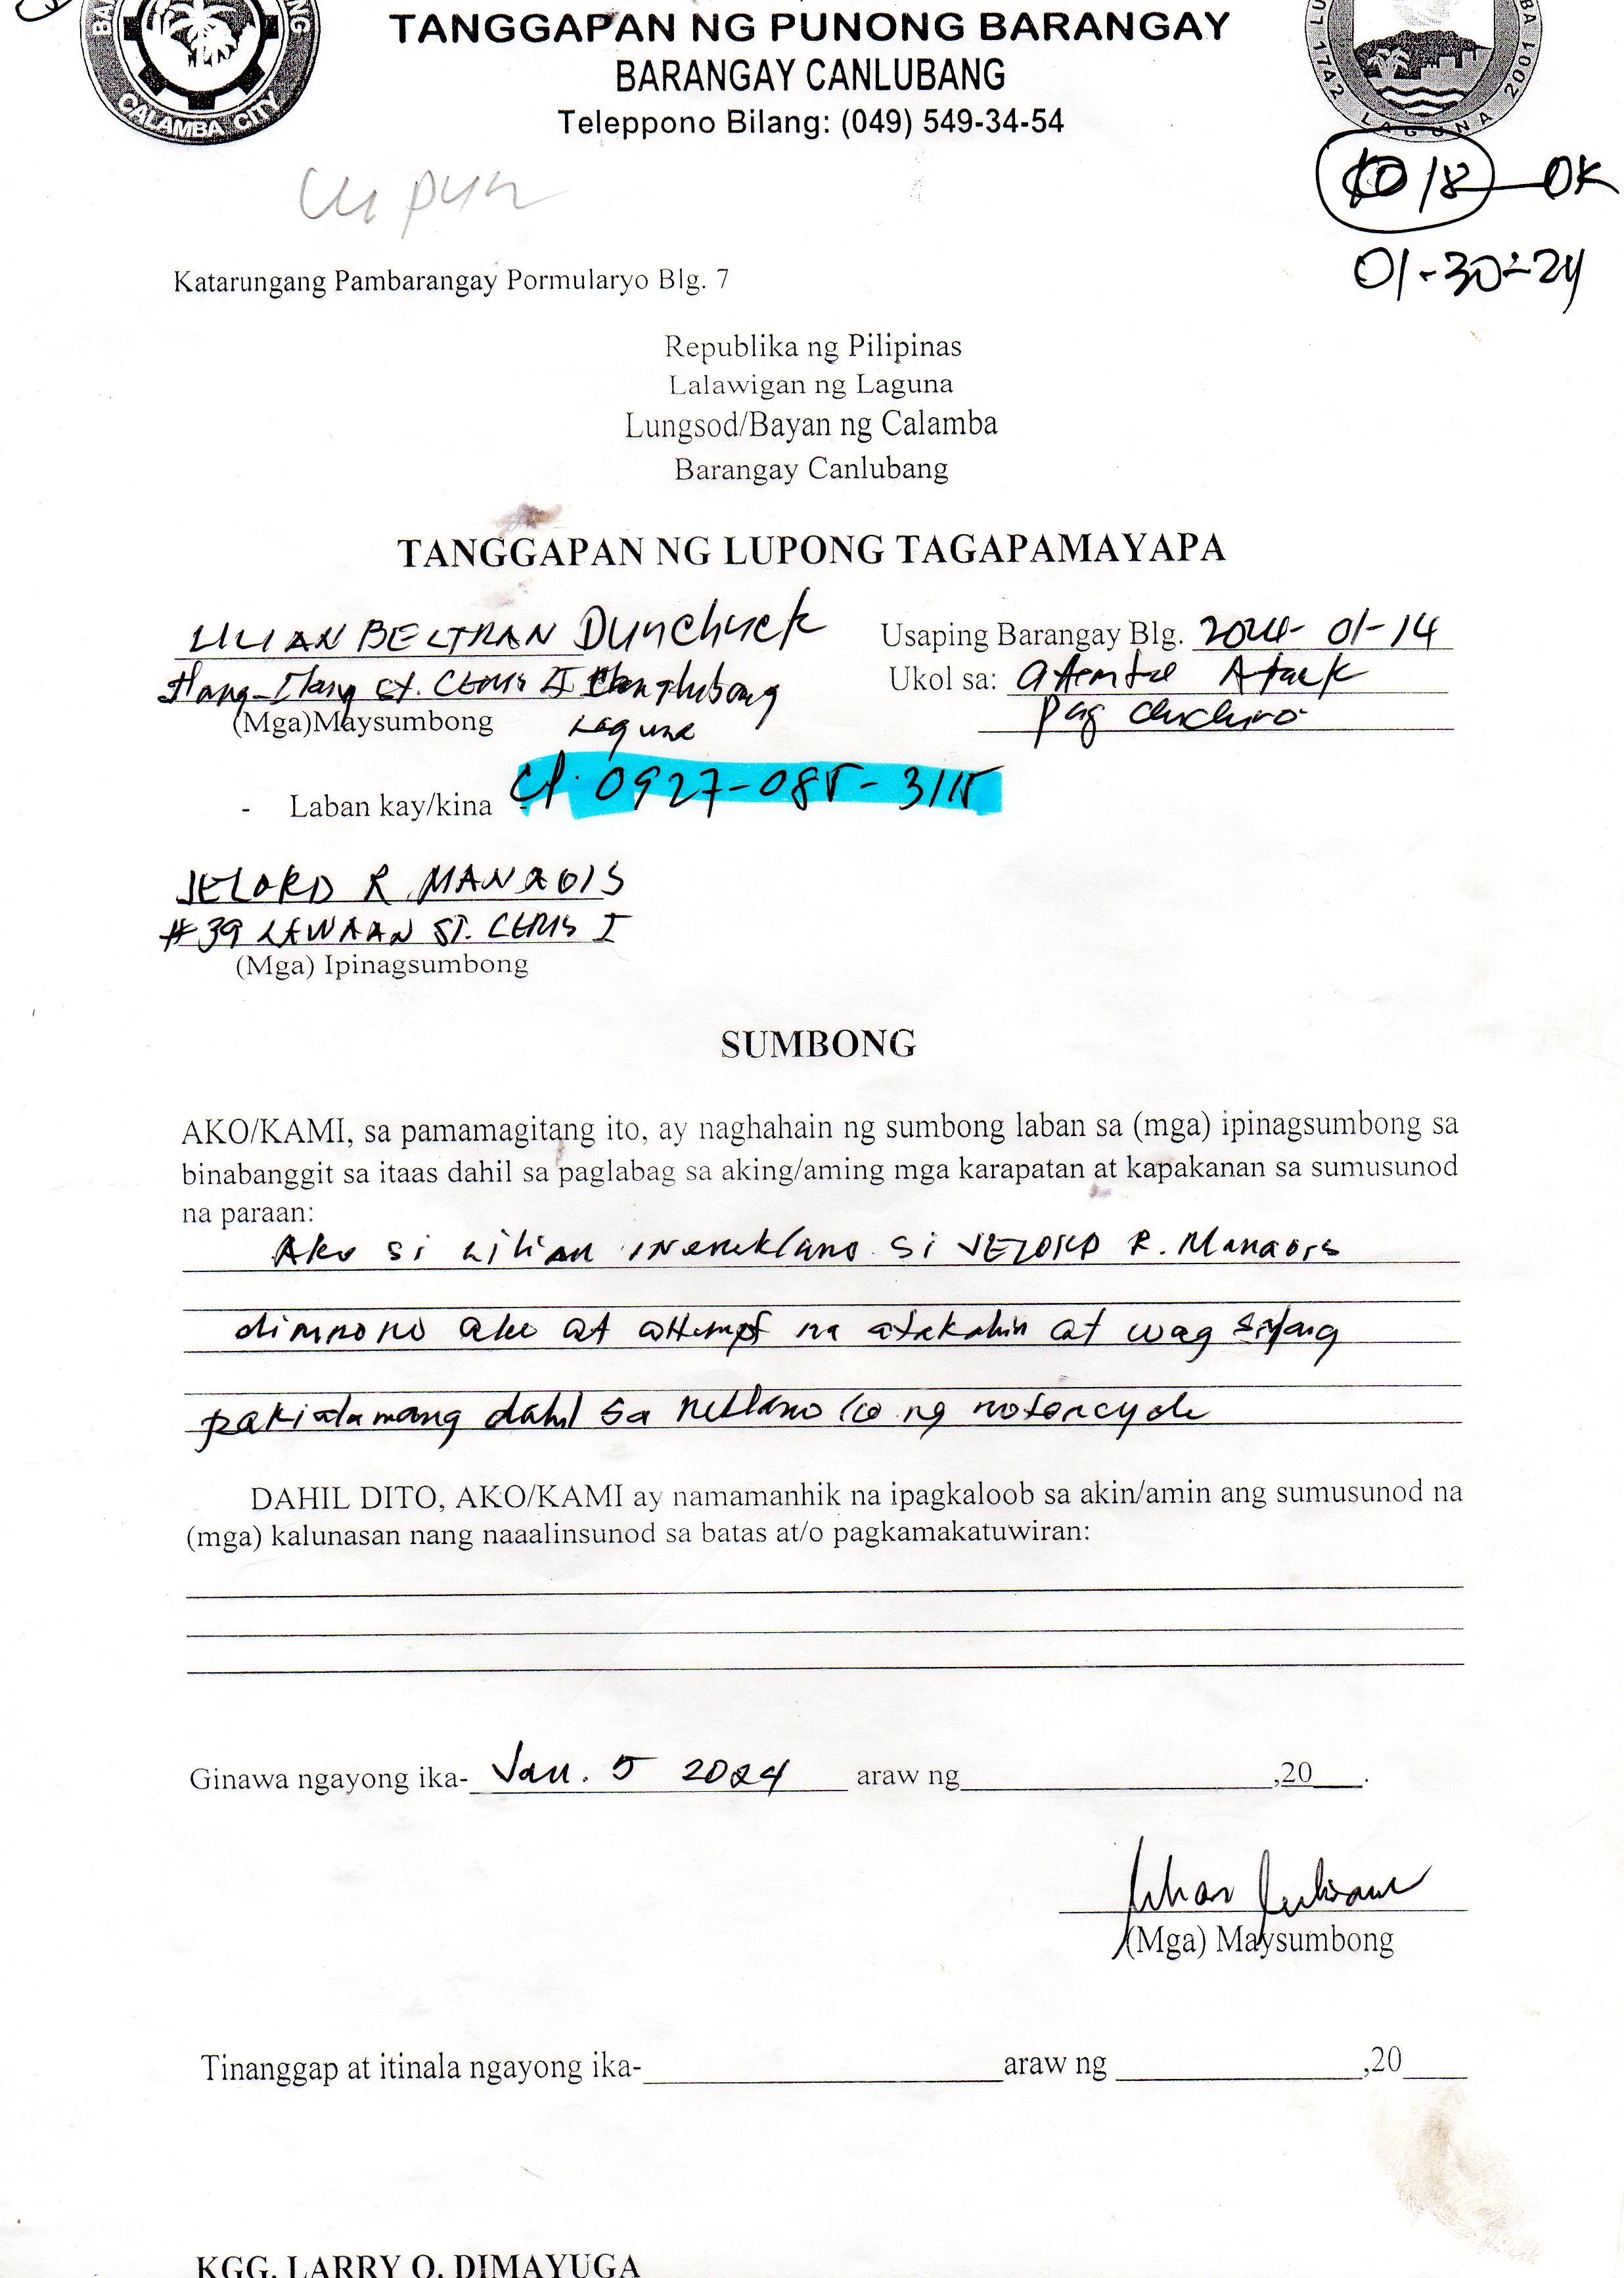 TANGGAPAN NG PUNONG BARANGAY
BARANGAY CANLUBANG
Teleppono Bilang: (049) 549-34-54
CALAMBA CITY
1742 LAGUNA 2001
18 OK
01-30-24
Lupon
Katarungang Pambarangay Pormularyo Blg. 7
Republika ng Pilipinas
Lalawigan ng Laguna
Lungsod/Bayan ng Calamba
Barangay Canlubang
TANGGAPAN NG LUPONG TAGAPAMAYAPA
LILIAN BELTRAN Dunchuck
Usaping Barangay Blg. 2024-01-14
Ilang-Ilang St. CERIS II Canlubang
Laguna
Ukol sa: Atack
Pag
(Mga)Maysumbong
- Laban kay/kina
Cp. 0927-085-3115
JELORD R MANAOIS
#39 LAWAAN ST. CERIS I
(Mga) Ipinagsumbong
SUMBONG
AKO/KAMI, sa pamamagitang ito, ay naghahain ng sumbong laban sa (mga) ipinagsumbong sa
binabanggit sa itaas dahil sa paglabag sa aking/aming mga karapatan at kapakanan sa sumusunod
na paraan:
Ako si Lilian si JELORD R. Manaois
ako at attempt na atakahin at wag siyang
pakialamang dahil sa ko ng motorcycle
DAHIL DITO, AKO/KAMI ay namamanhik na ipagkaloob sa akin/amin ang sumusunod na
(mga) kalunasan nang naaalinsunod sa batas at/o pagkamakatuwiran:
Ginawa ngayong ika- Jan. 5 2024 araw ng ,20 .
(Mga) Maysumbong
Tinanggap at itinala ngayong ika- araw ng ,20
KGG. LARRY O. DIMAYUGA